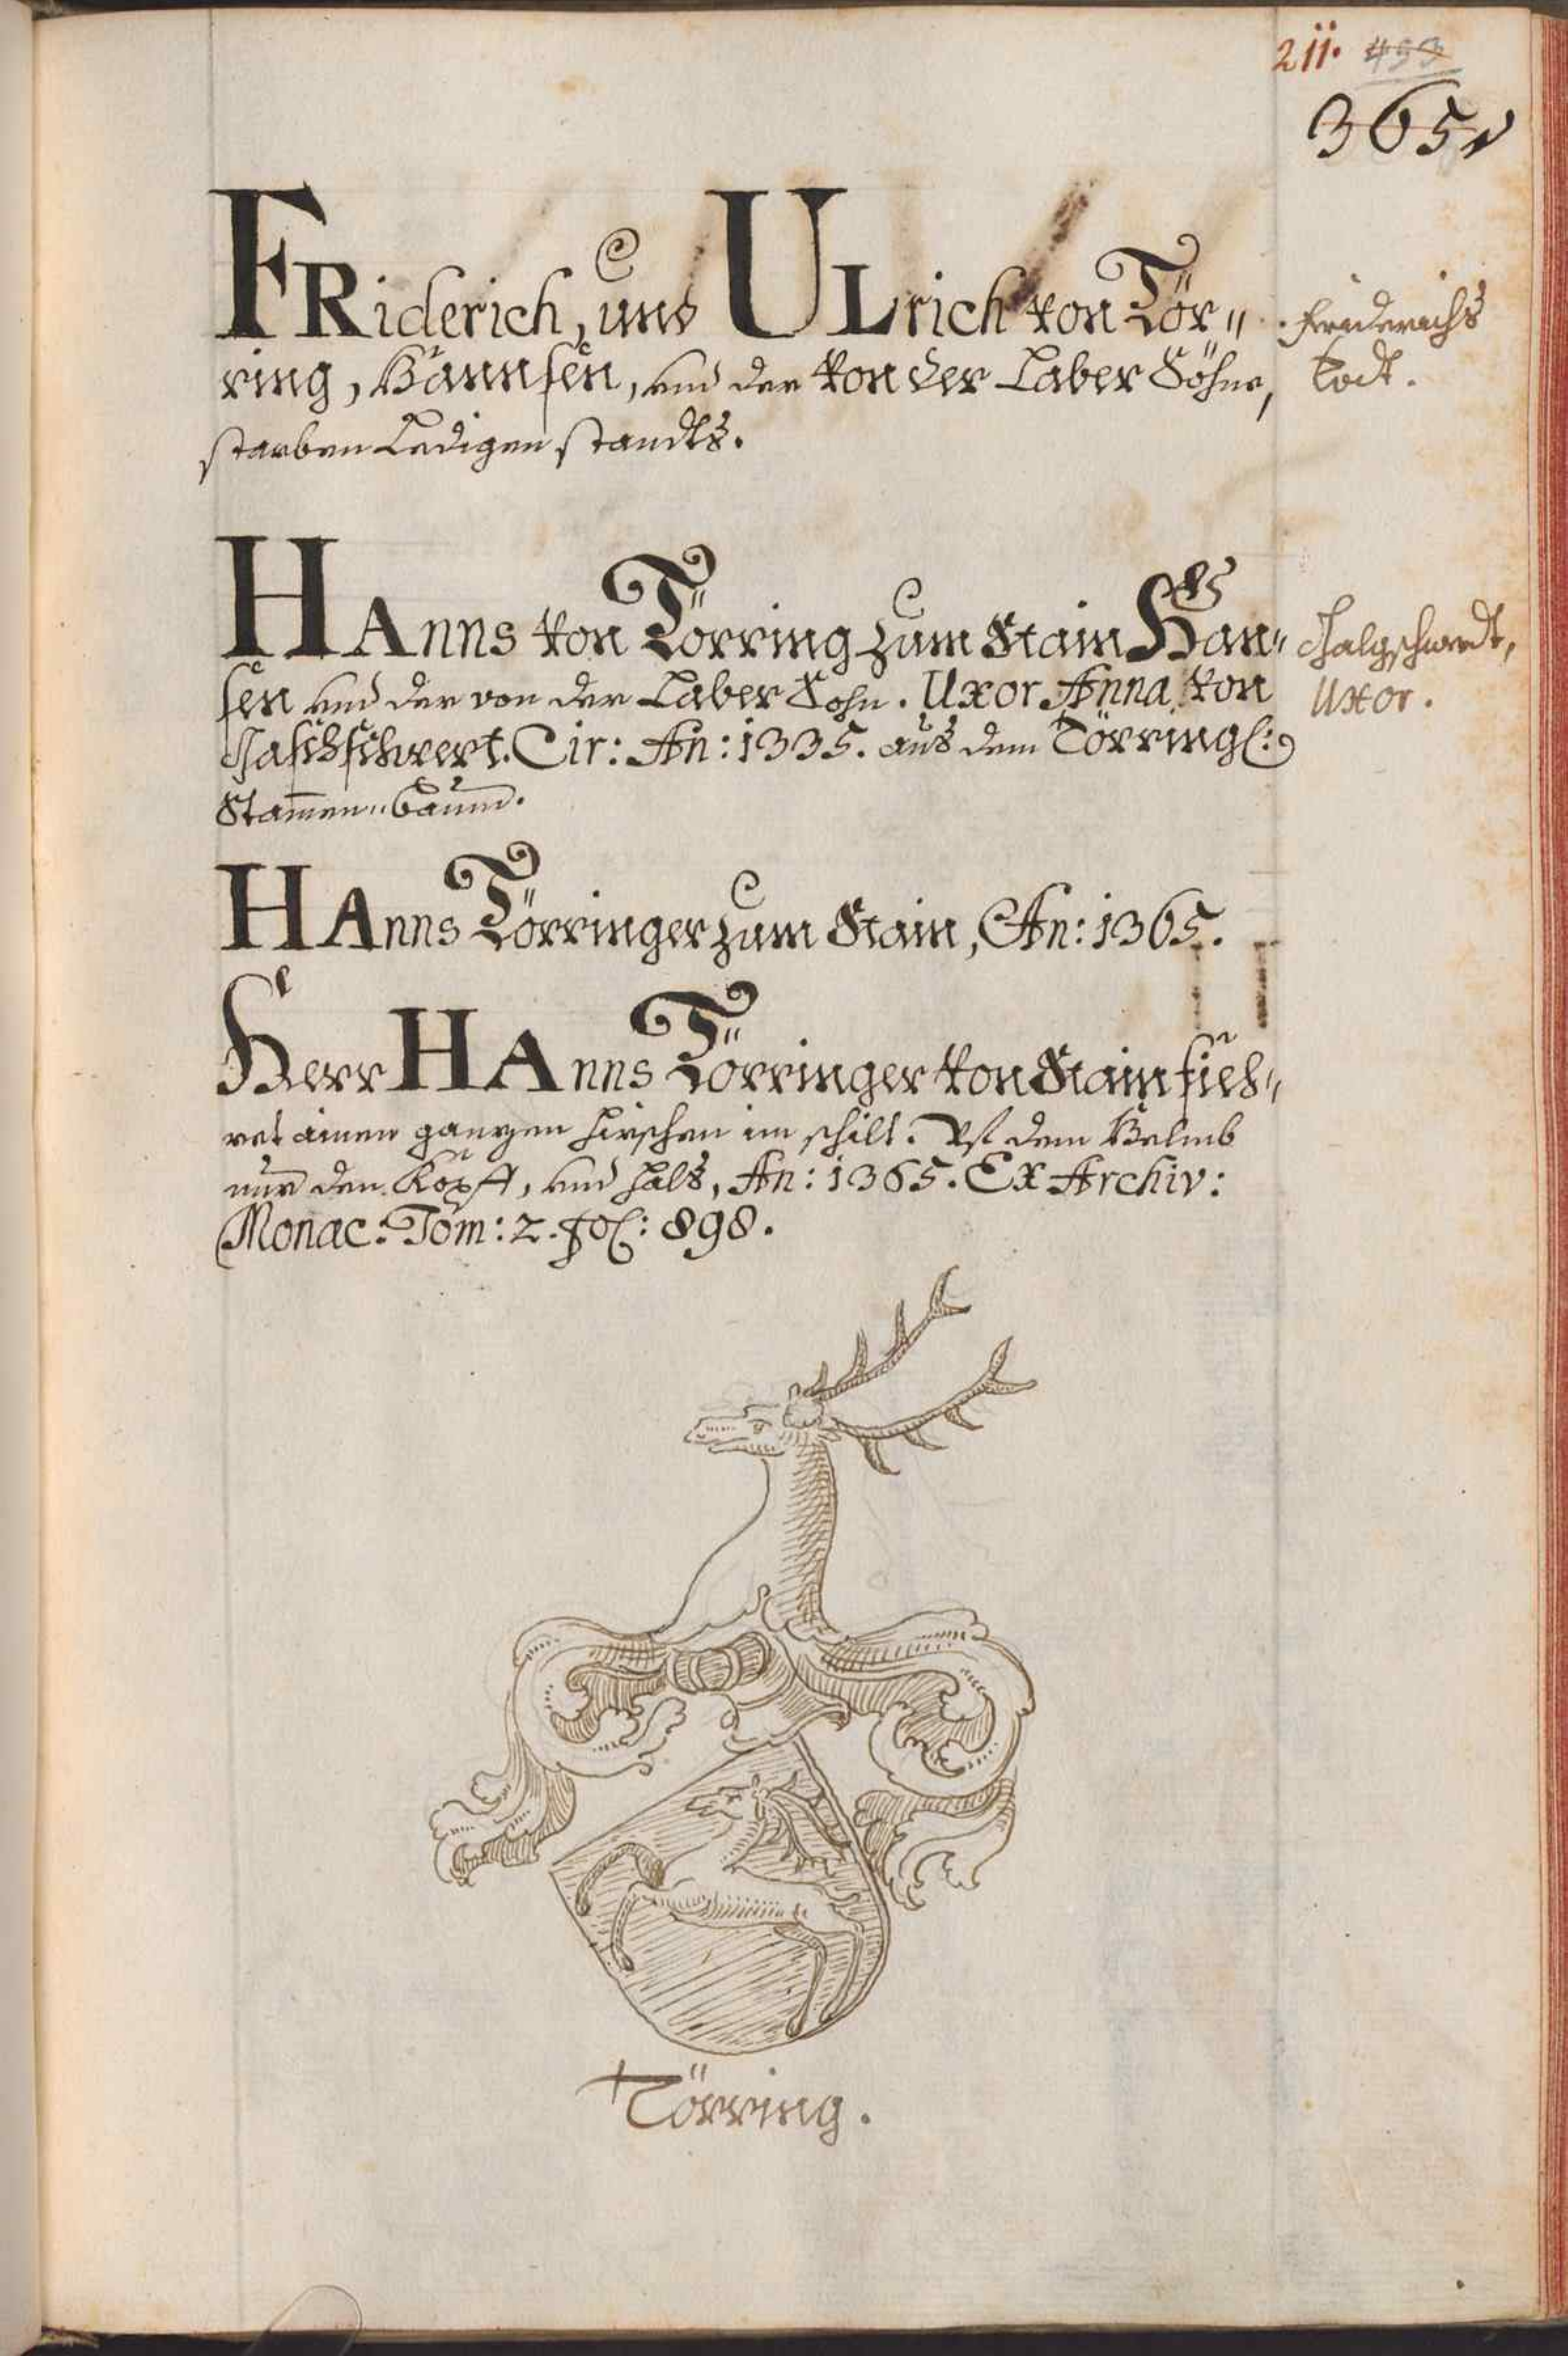 211. 453
365
FRiderich, und ULrich von Tör"
ring, Hannsen, und der von der Laber Söhne,
starben Ledigen standts.
Friderichs
Todt.
HAnns von Törring zum Stain Han"
sen und der von der Laber Sohn. Uxor Anna von
Cir: An: 1335. aus dem Törringl:
Stammen"baum.
Uxor.
HAnns Törringer zum Stain, An: 1365.
Herr HAnns Törringer von Stain füeh"
ret ainen ganzen hirschen im schilt. Uf dem Helmb
nur den Kopff, und hals, An: 1365. Ex Archiv:
Monac: Tom: 2. fol: 898.
Törring.